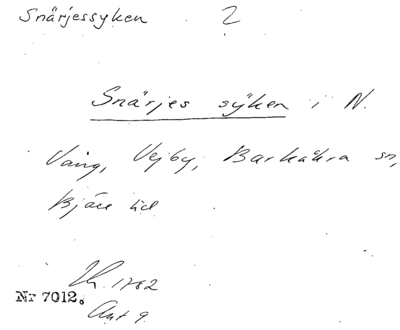 Snärjessyken 2
Snärjes syken i N.
Vång, Vejby, Barkåkra sn,
Bjäre hd
1782
Nr 7012.
Akt 9